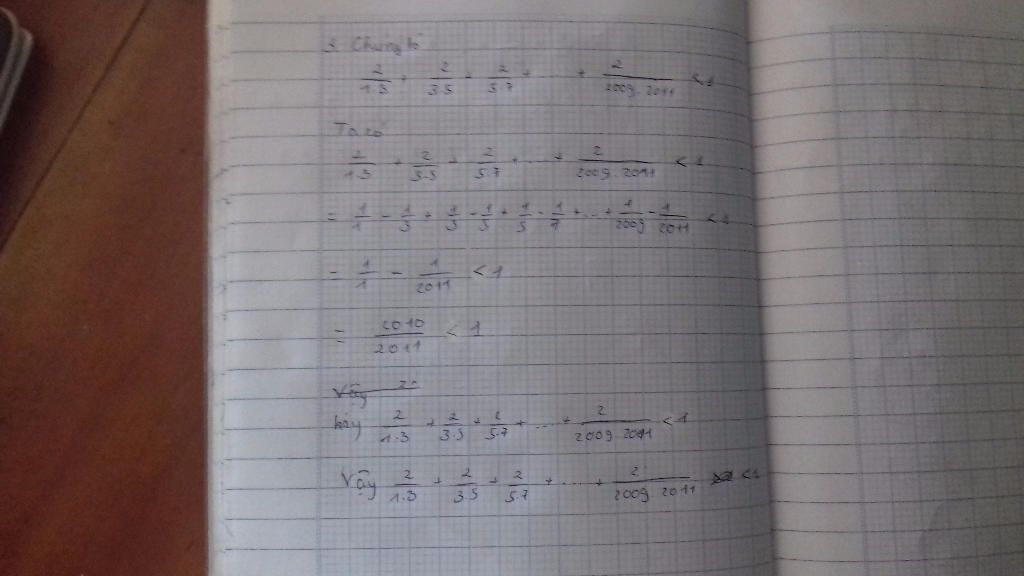 3. Chứng tỏ
2/1.3 + 2/3.5 + 2/5.7 + ... + 2/2009.2011 < 1
Ta có
2/1.3 + 2/3.5 + 2/5.7 + ... + 2/2009.2011 < 1
= 1/1 - 1/3 + 1/3 - 1/5 + 1/5 - 1/7 + ... + 1/2009 - 1/2011 < 1
= 1/1 - 1/2011 < 1
= 2010/2011 < 1
Vậy
hay 2/1.3 + 2/3.5 + 2/5.7 + ... + 2/2009.2011 < 1
Vậy 2/1.3 + 2/3.5 + 2/5.7 + ... + 2/2009.2011 < 1